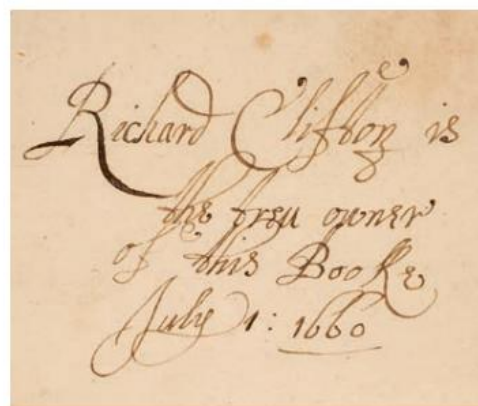 Richard Clifton is
the treu owner
of this Booke
July 1: 1660